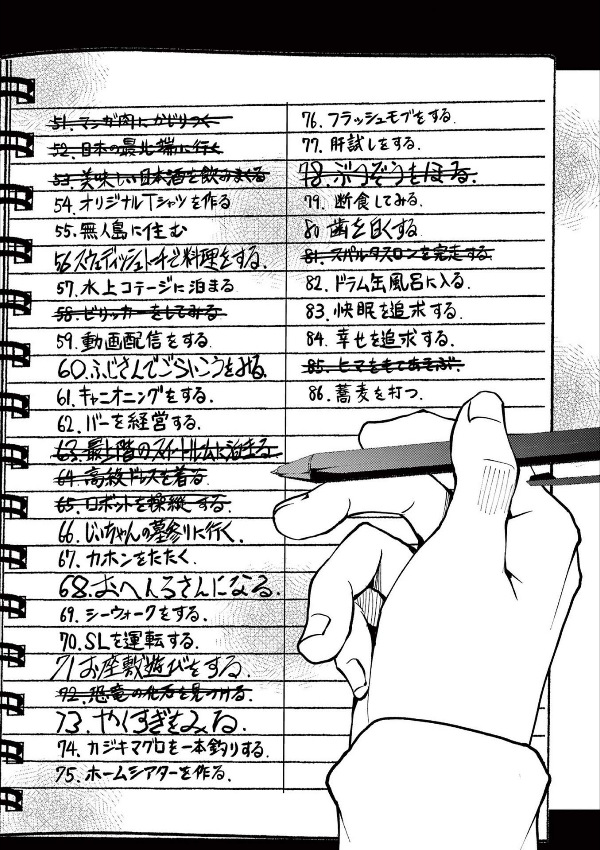 51. マンガ肉にかじりつく
52. 日本の最北端に行く
53. 美味しい日本酒を飲みまくる
54. オリジナルTシャツを作る
55. 無人島に住む
56 スウェディッシュトーチで料理をする.
57. 水上コテージに泊まる
58. ビリッカーをしてみる
59. 動画配信をする.
60. ふじさんでごらいこうをみる.
61. キャニオニングをする.
62. バーを経営する.
63. 最上階のスイートルームに泊まる
64. 高級ドレスを着る
65. ロボットを操縦する.
66. じいちゃんの墓参りに行く.
67. カホンをたたく
68. おへんろさんになる.
69. シーウォークをする.
70. SLを運転する.
71 お座敷遊びをする.
72. 恐竜の化石を見つける.
73. やくすぎをみる.
74. カジキマグロを一本釣りする.
75. ホームシアターを作る.
76. フラッシュモブをする.
77. 肝試しをする.
78. ぶつぞうをほる.
79. 断食してみる.
80 歯を白くする.
81. スパルタスロンを完走する.
82. ドラム缶風呂に入る.
83. 快眠を追求する.
84. 幸せを追求する.
85. ヒマをもてあそぶ.
86. 蕎麦を打つ.